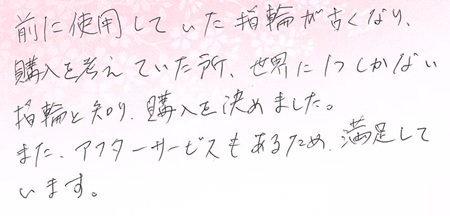 前に使用していた指輪が古くなり、
購入を考えていた所、世界に1つしかない
指輪と知り、購入を決めました。
また、アフターサービスもあるため、満足して
います。